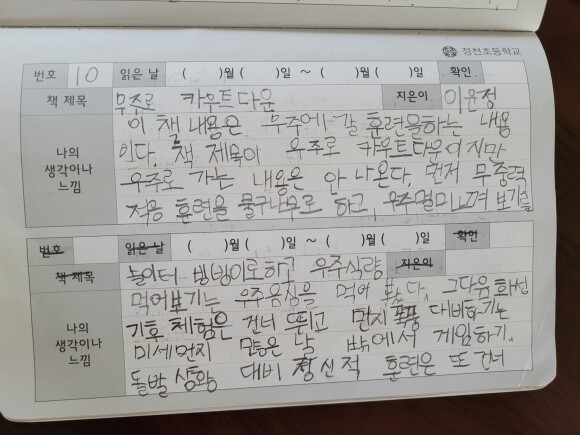 정천초등학교
번호 10 읽은 날 ( )월 ( )일 ~ ( )월 ( )일 확인
책 제목 우주로 카우트다운 지은이 이윤정
이 책 내용은 우주에 갈 훈련을하는 내용
이다. 책 제목이 우주로 카우트다운이지만
나의
생각이나
느낌
우주로 가는 내용은 안 나온다. 먼저 무중력
적응 훈련을 물구나무로 하고, 우주멀미 느껴 보기를
번호 읽은 날 ( )월 ( )일 ~ ( )월 ( )일 확인
책 제목 놀이터 방방이로하고 우주식량 지은이
먹어보기는 우주음식을 먹어 봤다. 그다음 화성
나의
생각이나
느낌
기후 체험은 건너 뛰고 먼지 폭풍 대비하기는
미세먼지 많은 날 밖에서 게임하기.
돌발 상황 대비 정신적 훈련은 또 건너